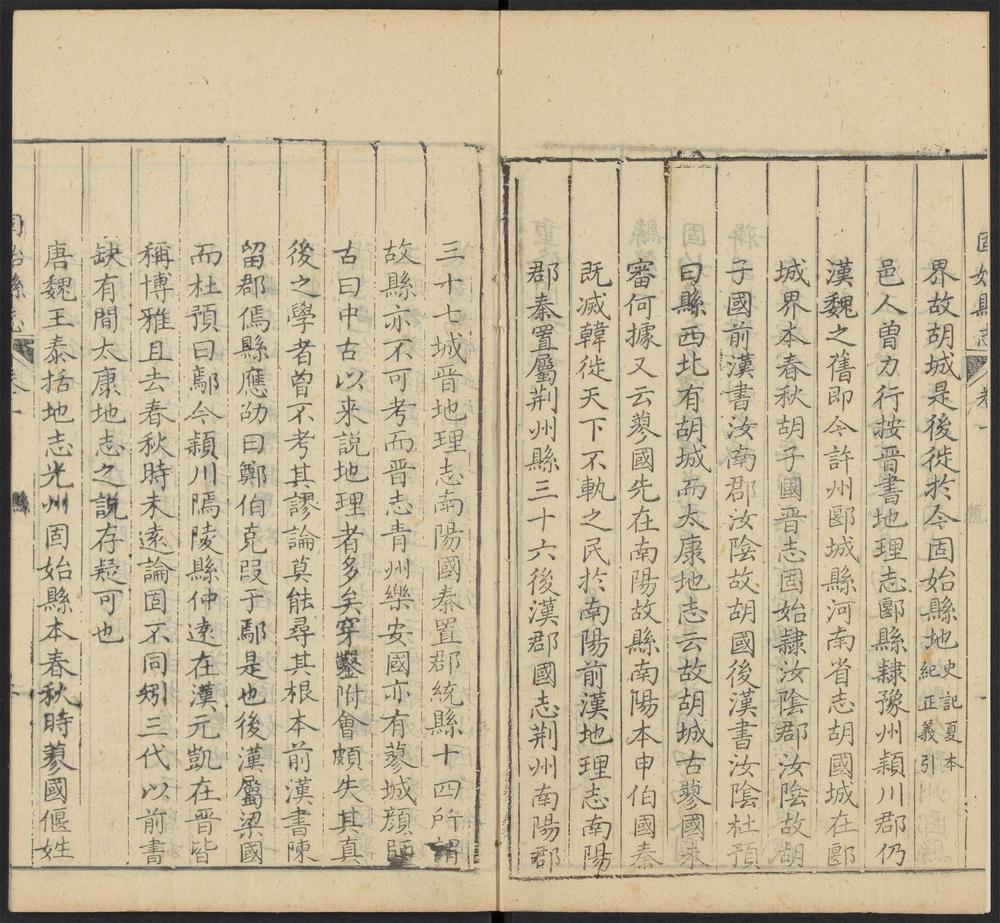 固始縣志 卷一
界故胡城是後徙於今固始縣地史記夏本紀正義引
邑人曾力行按晋書地理志郾縣隸豫州潁川郡仍
漢魏之舊即今許州郾城縣河南省志胡國城在郾
城界本春秋胡子國晋志固始隸汝陰郡汝陰故胡
子國前漢書汝南郡汝陰故胡國後漢書汝陰杜預
曰縣西北有胡城而太康地志云故胡城古蓼國未
審何據又云蓼國先在南陽故縣南陽本申伯國秦
既滅韓徙天下不軌之民於南陽前漢地理志南陽
郡秦置屬荆州縣三十六後漢郡國志荆州南陽郡
三十七城晋地理志南陽國秦置郡統縣十四所謂
故縣亦不可考而晋志青州樂安國亦有蓼城顔師
古曰中古以来説地理者多矣穿鑿附會頗失其真
後之學者曽不考其謬論莫能尋其根本前漢書陳
留郡傿縣應劭曰鄭伯克叚于鄢是也後漢屬梁國
而杜預曰鄢今潁川隖陵縣仲遠在漢元凱在晋皆
稱博雅且去春秋時未遠論固不同矧三代以前書
缺有間太康地志之説存疑可也
唐魏王泰括地志光州固始縣本春秋時蓼國偃姓
固始縣志 卷一